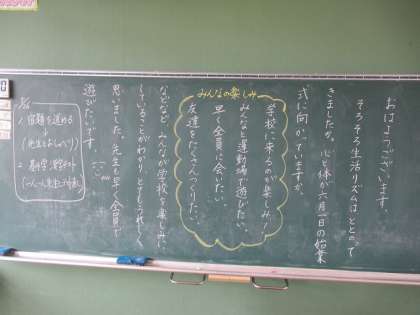 おはようございます。
そろそろ生活リズムはととのって
きましたか。心と体が六月一日の始業
式に向かっていますか。
みんなの楽しみ
学校に来るのが楽しみ！
みんなと運動場で遊びたい。
早く全員に会いたい。
友達をたくさんつくりたい。
などなど みんなが学校を楽しみに
していることがわかり とてもうれしく
思いました。先生も早く全員で
遊びたいです。
1 宿題を進める
2